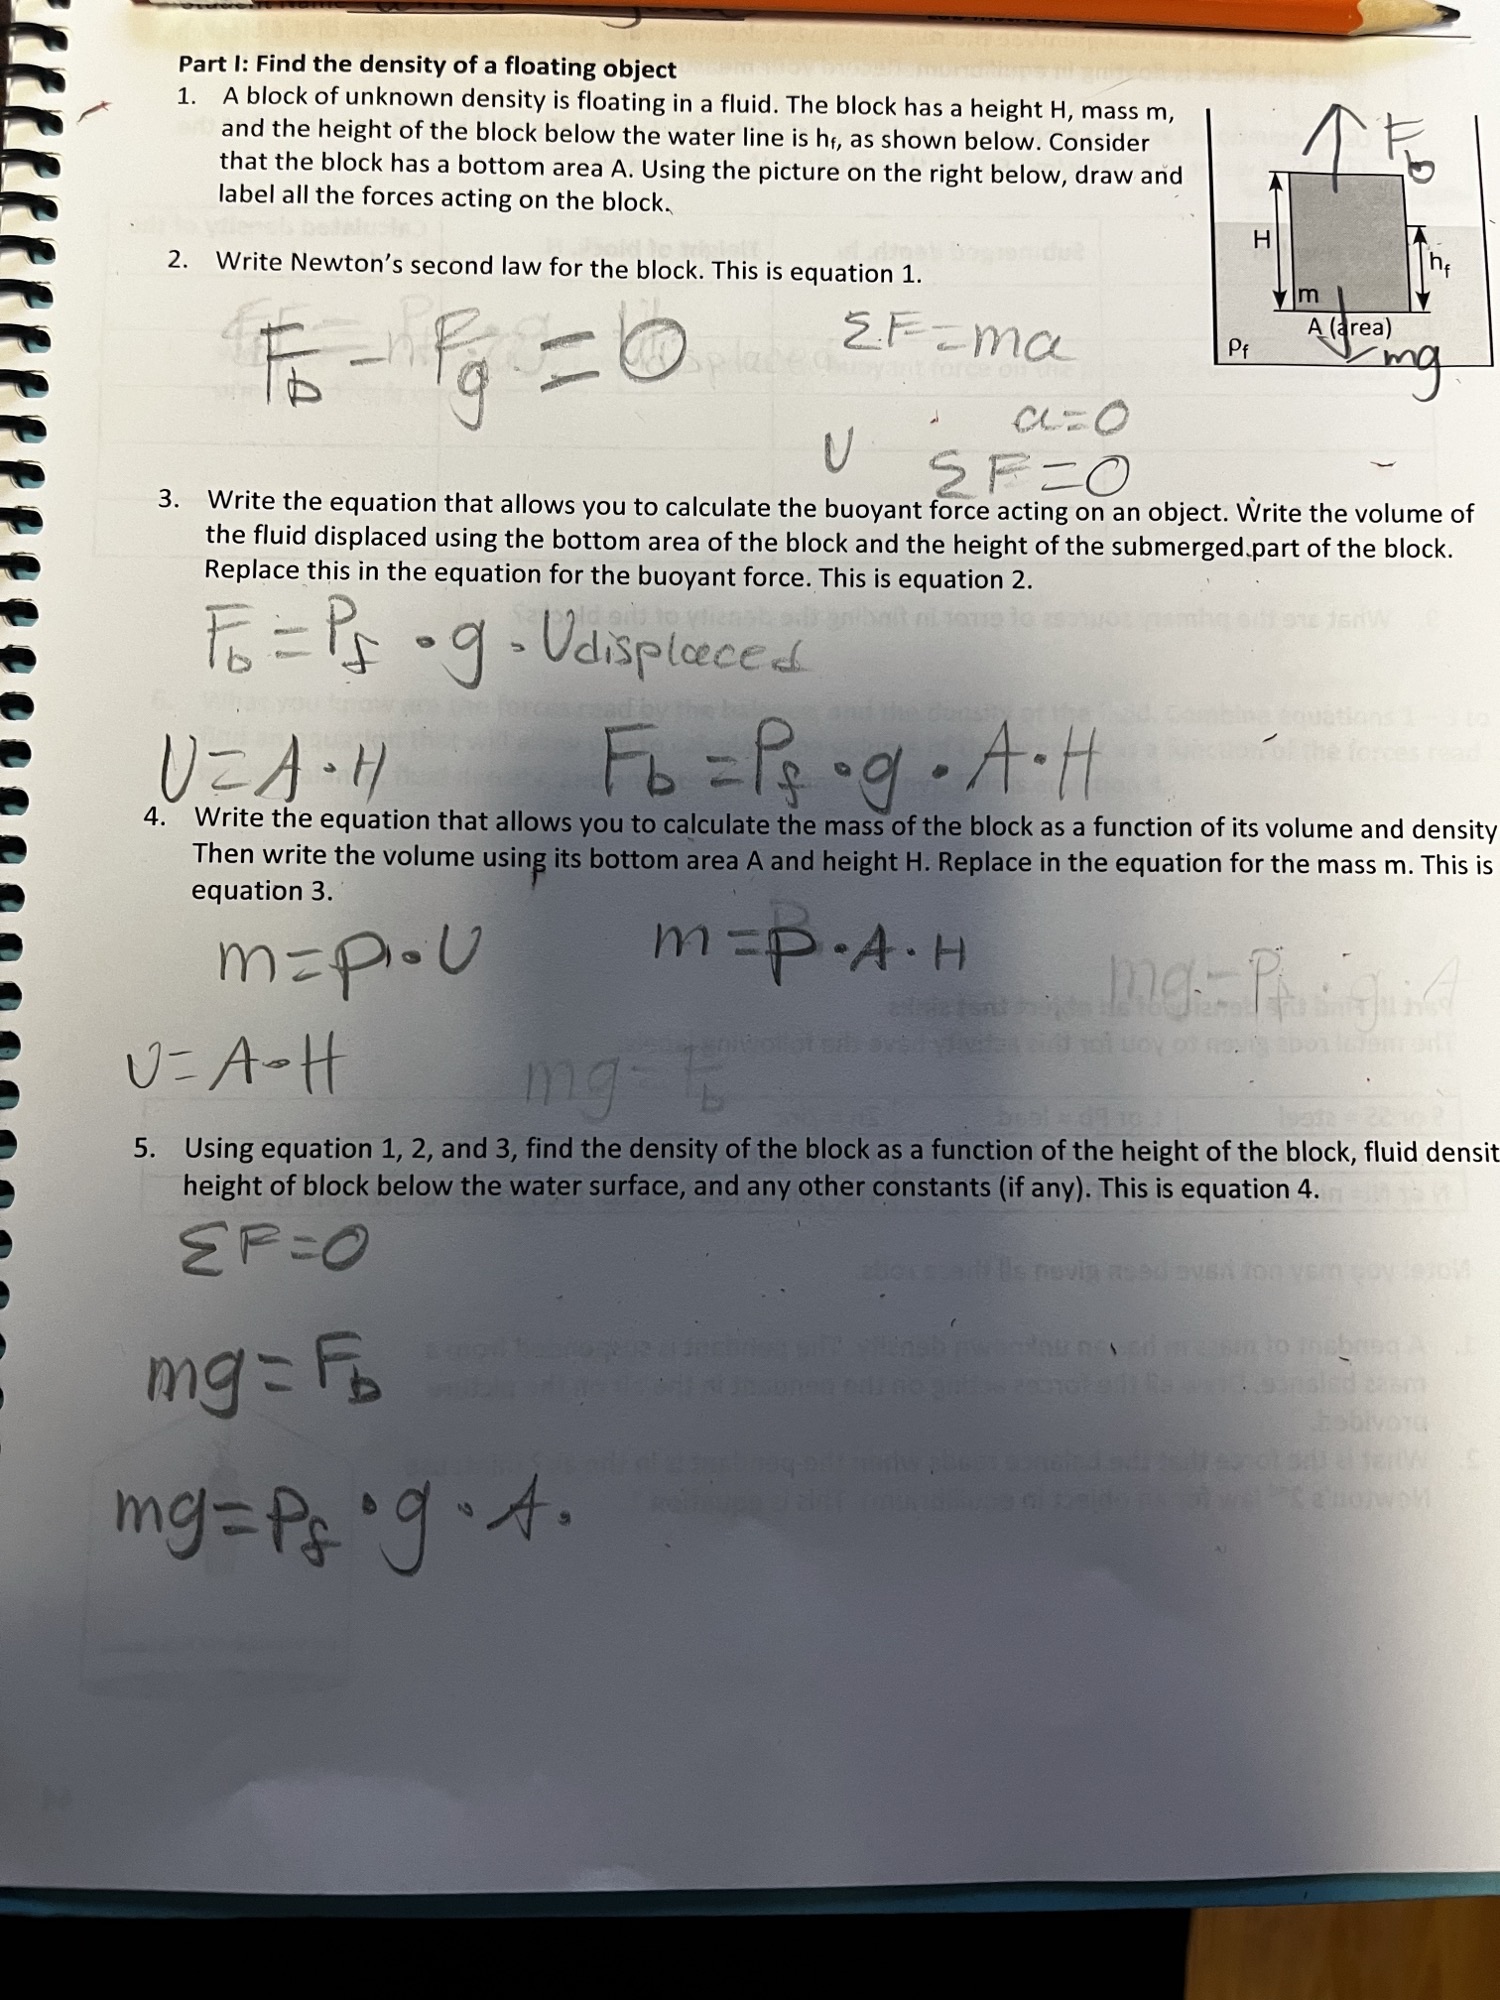 Part I: Find the density of a floating object
1. A block of unknown density is floating in a fluid. The block has a height H, mass m,
and the height of the block below the water line is hf, as shown below. Consider
that the block has a bottom area A. Using the picture on the right below, draw and
label all the forces acting on the block.
Fb
H
hf
m
A (area)
ρf
mg
2. Write Newton's second law for the block. This is equation 1.
Fb - Fg = 0
ΣF = ma
a = 0
U
ΣF = 0
3. Write the equation that allows you to calculate the buoyant force acting on an object. Write the volume of
the fluid displaced using the bottom area of the block and the height of the submerged part of the block.
Replace this in the equation for the buoyant force. This is equation 2.
Fb = Pf • g • Udisplaced
U = A • H
Fb = Pf • g • A • H
4. Write the equation that allows you to calculate the mass of the block as a function of its volume and density
Then write the volume using its bottom area A and height H. Replace in the equation for the mass m. This is
equation 3.
m = p • U
m = p • A • H
mg = Pf • g • A
U = A • H
mg = Fb
5. Using equation 1, 2, and 3, find the density of the block as a function of the height of the block, fluid densit
height of block below the water surface, and any other constants (if any). This is equation 4.
ΣF = 0
mg = Fb
mg = Pf • g • A •